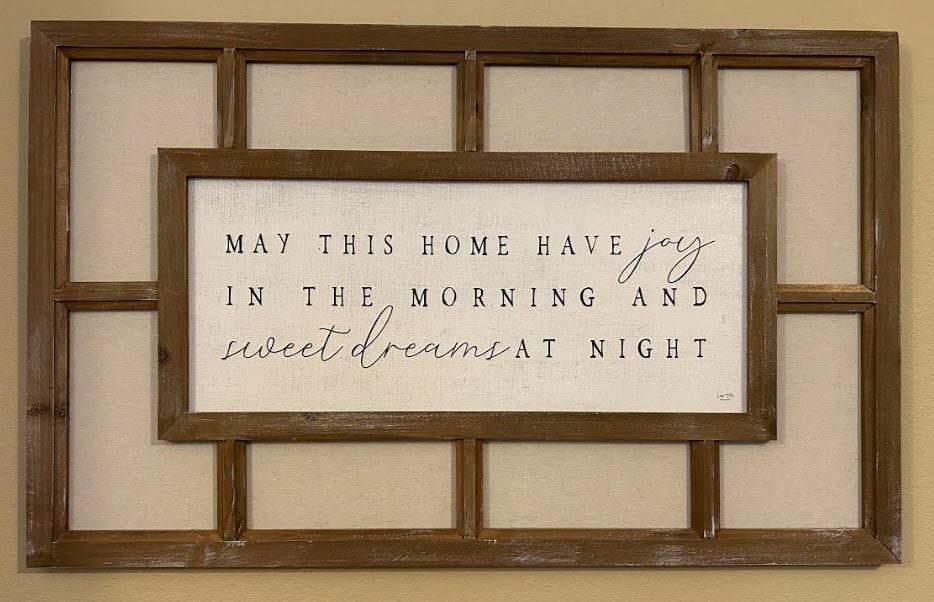 MAY THIS HOME HAVE joy
IN THE MORNING AND
sweet dreams AT NIGHT